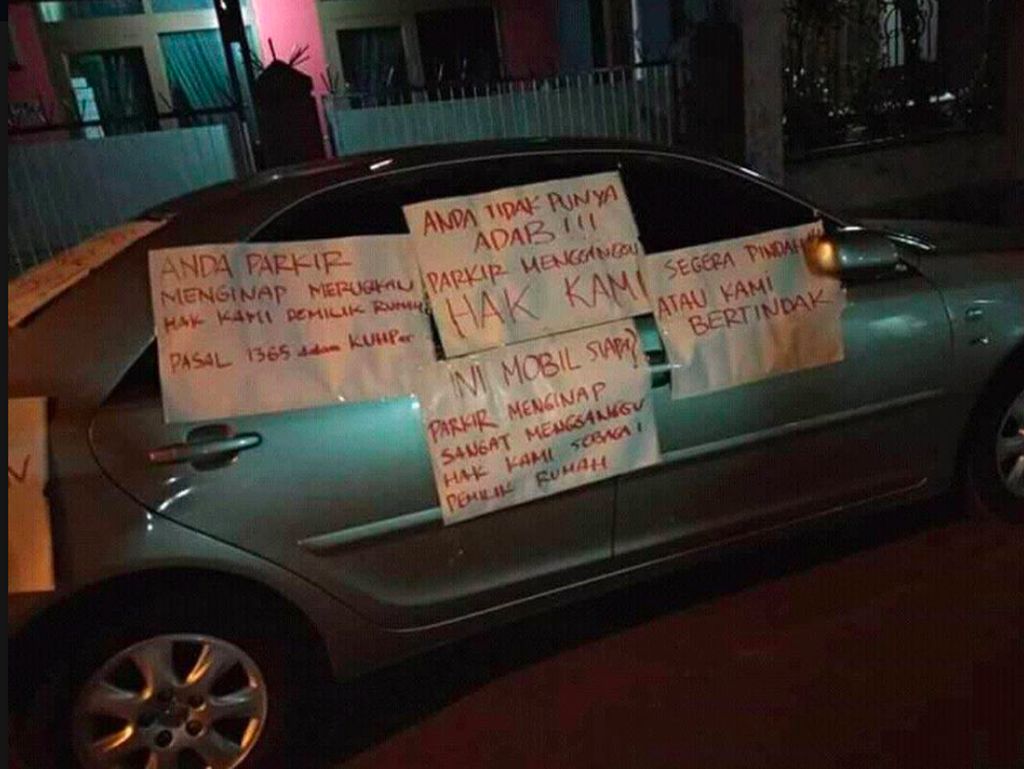 ANDA PARKIR
MENGINAP MERUGIKAN
HAK KAMI PEMILIK RUMAH
PASAL 1365 dalam KUHPer
ANDA TIDAK PUNYA
ADAB!!!
PARKIR MENGGANGGU
HAK KAMI
SEGERA PINDAH!!!
ATAU KAMI
BERTINDAK
INI MOBIL SIAPA?
PARKIR MENGINAP
SANGAT MENGGANGGU
HAK KAMI SEBAGAI
PEMILIK RUMAH